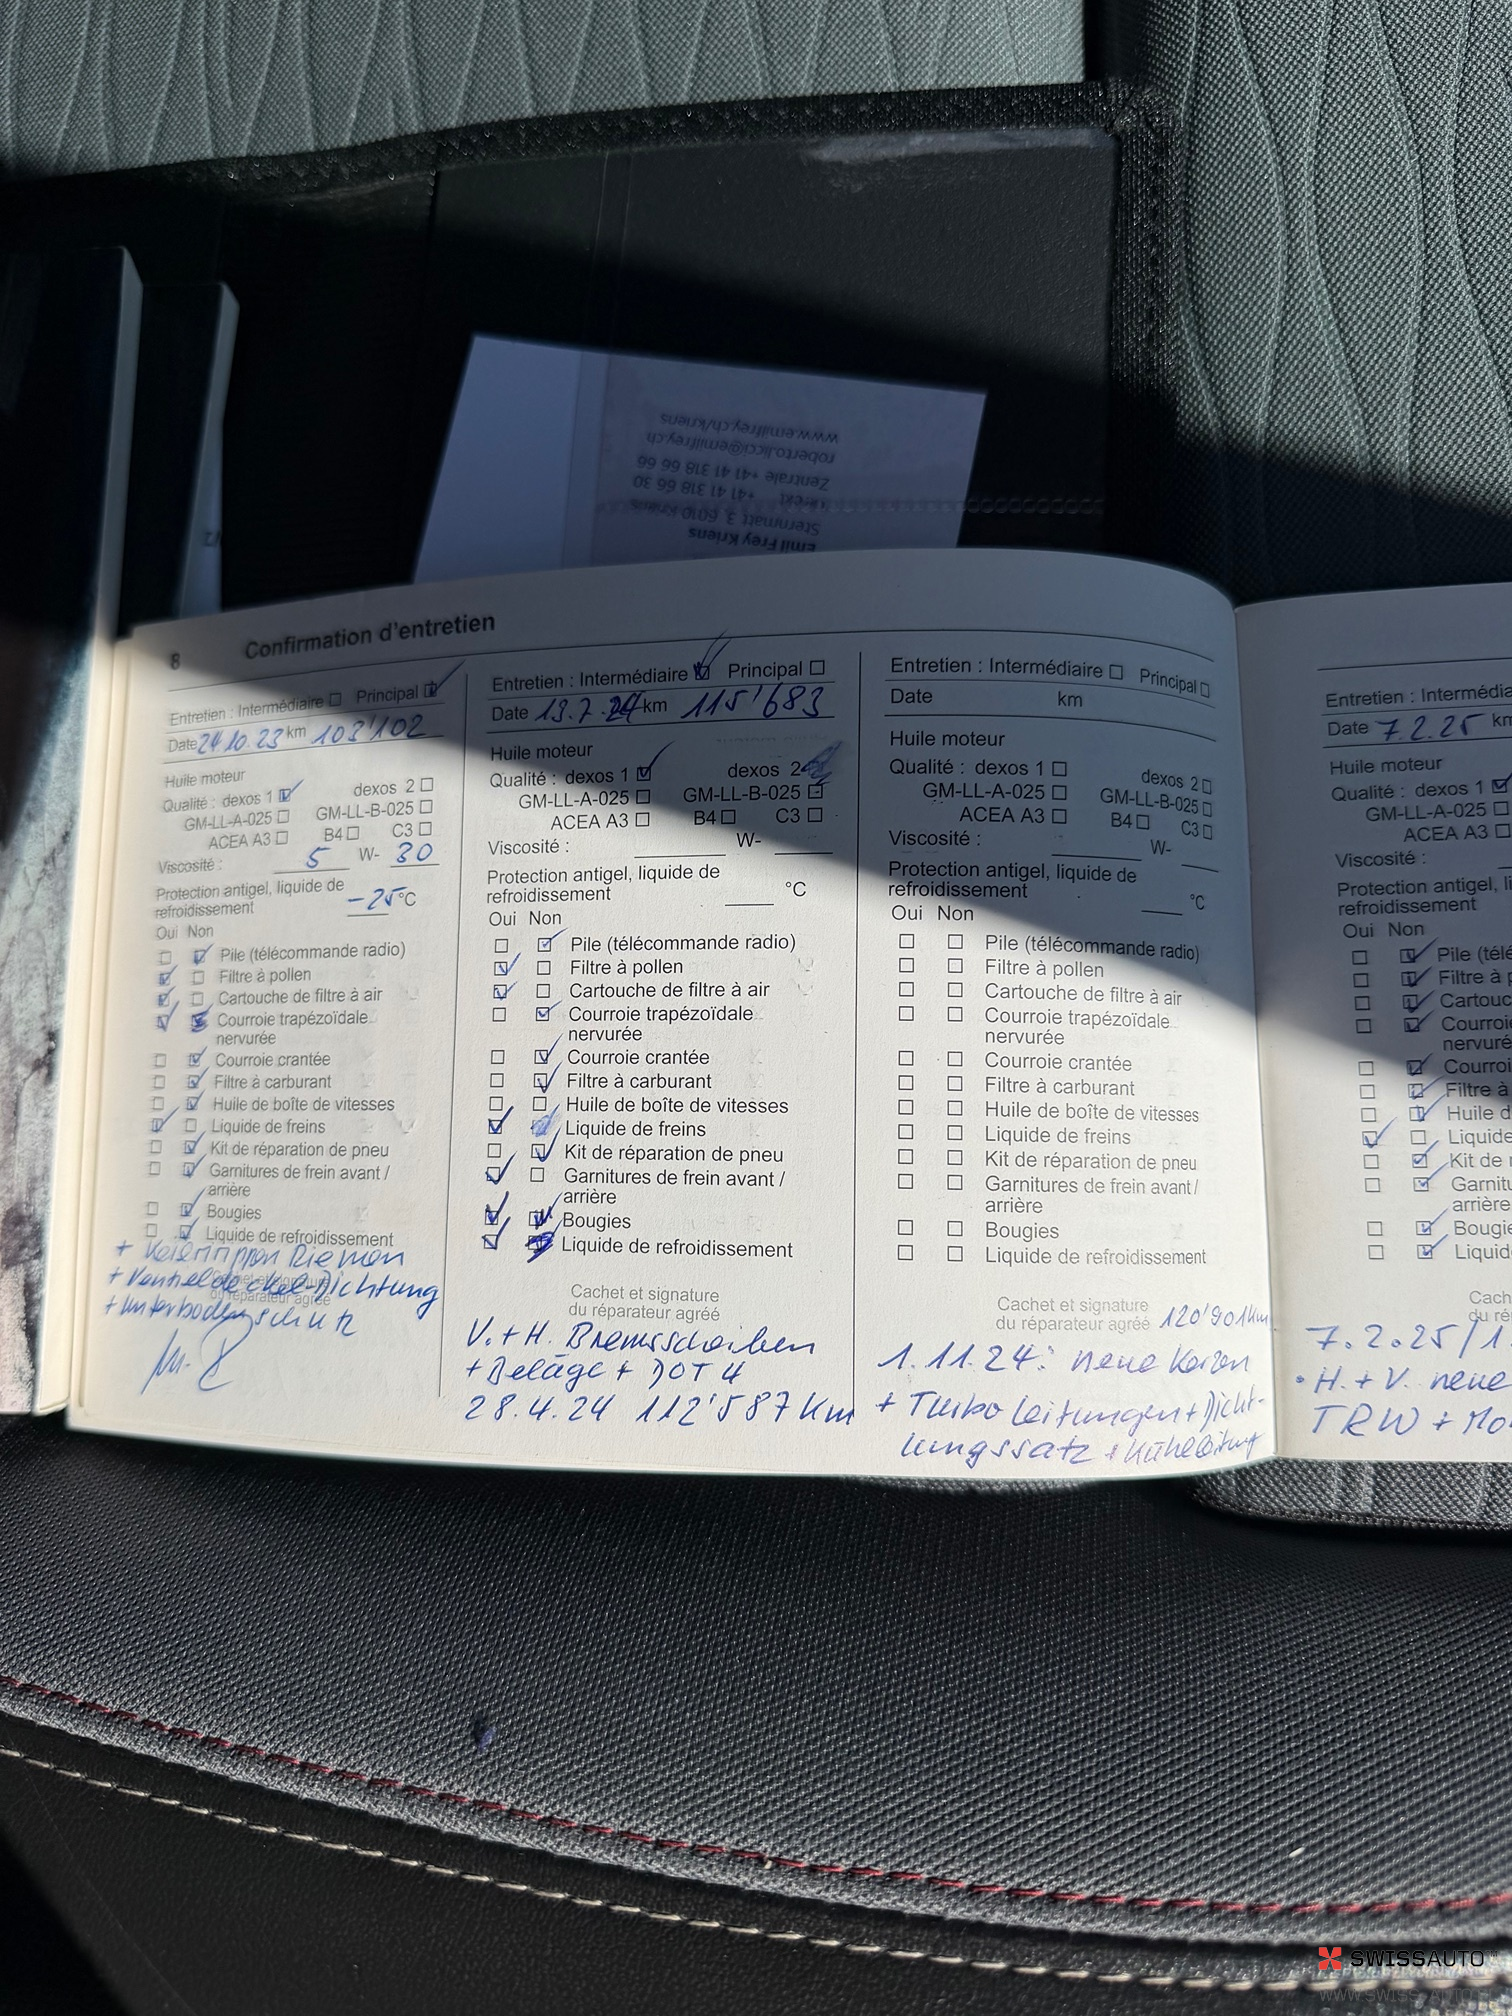 www.emilfrey.ch/kriens
roberto.licci@emilfrey.ch
Zentrale +41 41 318 66 66
+41 41 318 66 30
Sternmatt 3, 6010 Kriens
Emil Frey Kriens
8 Confirmation d'entretien
Entretien : Intermédiaire ☐ Principal ☑
Date 24.10.23 km 103'102
Huile moteur
Qualité : dexos 1 ☑ dexos 2 ☐
GM-LL-A-025 ☐ GM-LL-B-025 ☐
ACEA A3 ☐ B4 ☐ C3 ☐
Viscosité : 5 W- 30
Protection antigel, liquide de
refroidissement -25 °C
Oui Non
☐ ☑ Pile (télécommande radio)
☑ ☐ Filtre à pollen
☑ ☐ Cartouche de filtre à air
☑ Courroie trapézoïdale
nervurée
☐ ☑ Courroie crantée
☐ ☑ Filtre à carburant
☐ ☑ Huile de boîte de vitesses
☑ ☐ Liquide de freins
☐ ☑ Kit de réparation de pneu
☐ ☑ Garnitures de frein avant /
arrière
☐ ☑ Bougies
☐ ☑ Liquide de refroidissement
+ Keilrippen Riemen
+ Ventildeckel-Dichtung
+ Unterbodenschutz
Cachet et signature
du réparateur agréé
Entretien : Intermédiaire ☑ Principal ☐
Date 13.7.24 km 115'683
Huile moteur
Qualité : dexos 1 ☑ dexos 2
GM-LL-A-025 ☐ GM-LL-B-025
ACEA A3 ☐ B4 ☐ C3 ☐
Viscosité : W-
Protection antigel, liquide de
refroidissement °C
Oui Non
☐ ☑ Pile (télécommande radio)
☑ ☐ Filtre à pollen
☑ ☐ Cartouche de filtre à air
☐ ☑ Courroie trapézoïdale
nervurée
☐ ☑ Courroie crantée
☐ ☑ Filtre à carburant
☐ ☐ Huile de boîte de vitesses
☑ Liquide de freins
☐ ☑ Kit de réparation de pneu
☑ ☐ Garnitures de frein avant /
arrière
☑ ☑ Bougies
☑ Liquide de refroidissement
Cachet et signature
du réparateur agréé
V. + H. Bremsscheiben
+ Beläge + DOT 4
28.4.24 112'587 Km
Entretien : Intermédiaire ☐ Principal ☐
Date km
Huile moteur
Qualité : dexos 1 ☐ dexos 2 ☐
GM-LL-A-025 ☐ GM-LL-B-025 ☐
ACEA A3 ☐ B4 ☐ C3 ☐
Viscosité : W-
Protection antigel, liquide de
refroidissement °C
Oui Non
☐ ☐ Pile (télécommande radio)
☐ ☐ Filtre à pollen
☐ ☐ Cartouche de filtre à air
☐ ☐ Courroie trapézoïdale
nervurée
☐ ☐ Courroie crantée
☐ ☐ Filtre à carburant
☐ ☐ Huile de boîte de vitesses
☐ ☐ Liquide de freins
☐ ☐ Kit de réparation de pneu
☐ ☐ Garnitures de frein avant /
arrière
☐ ☐ Bougies
☐ ☐ Liquide de refroidissement
Cachet et signature
du réparateur agréé 120'901 Km
1.11.24: neue Kerzen
+ Turbo Leitungen + Dicht-
ungssatz +
Entretien : Intermédia
Date 7.2.25 km
Huile moteur
Qualité : dexos 1 ☑
GM-LL-A-025
ACEA A3
Viscosité :
Protection antigel, li
refroidissement
Oui Non
☐ ☑ Pile (télé
☐ ☑ Filtre à p
☐ ☑ Cartouc
☐ ☑ Courroi
nervuré
☐ ☑ Courroi
☐ ☑ Filtre à
☐ ☑ Huile d
☑ ☐ Liquide
☐ ☑ Kit de r
☐ ☑ Garnitu
arrière
☐ ☑ Bougie
☐ ☑ Liquid
Cach
du ré
7.2.25/1
• H. + V. neue
TRW + Mo
SWISSAUTO